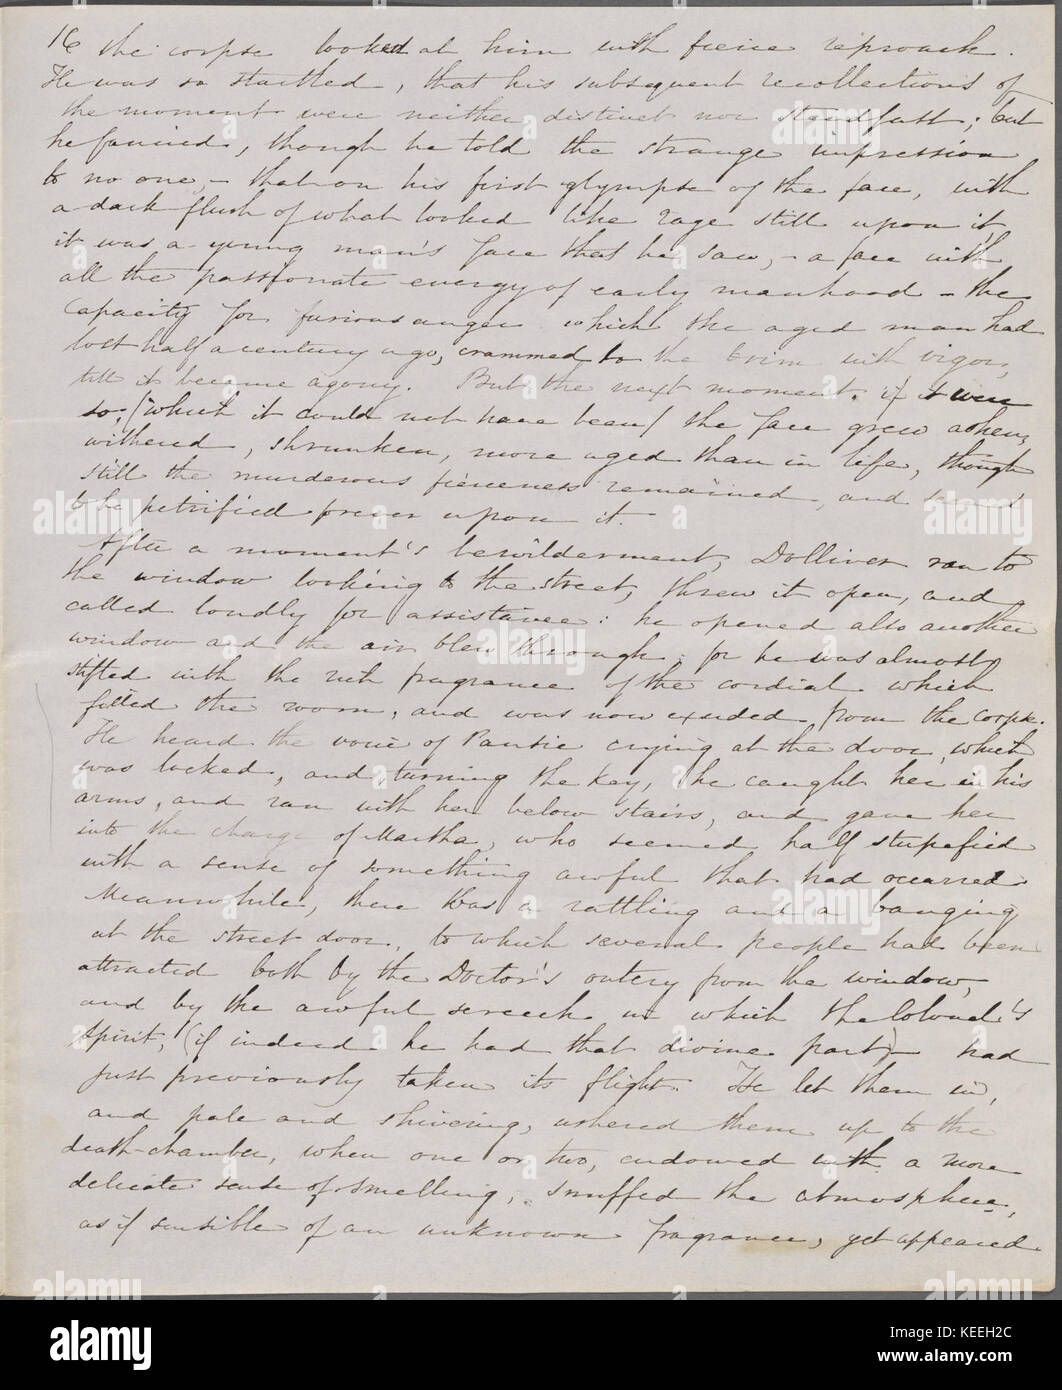 16 the corpse looked at him with fierce reproach.
He was so startled, that his subsequent recollections of
the moment were neither distinct nor steadfast; but
he fancied, though he told the strange impression
to no one, – that on his first glympse of the face, with
a dark flush of what looked like rage still upon it,
it was a young man's face that he saw, – a face with
all the passionate energy of early manhood – the
capacity for furious anger which the aged man had
lost half a century ago, crammed to the brim with vigor,
till it became agony. But the next moment, if it were
so, (which it could not have been) the face grew ashen,
withered, shrunken, more aged than in life, though
still the murderous fierceness remained, and seemed
to be petrified forever upon it.
After a moment's bewilderment, Dolliver ran to
the window looking to the street, threw it open, and
called loudly for assistance: he opened also another
window and the air blew through; for he was almost
stifled with the rich fragrance of the cordial which
filled the room, and was now exuded from the corpse.
He heard the voice of Pansie crying at the door, which
was locked, and, turning the key, he caught her in his
arms, and ran with her below stairs, and gave her
into the charge of Martha, who seemed half stupefied
with a sense of something awful that had occurred.
Meanwhile, there was a rattling and a banging
at the street door, to which several people had been
attracted both by the Doctor's outcry from the window,
and by the awful screech in which the Colonel's
spirit, (if indeed he had that divine part) had
just previously taken its flight. He let them in,
and pale and shivering, ushered them up to the
death-chamber, when one or two, endowed with a more
delicate sense of smelling, snuffed the atmosphere,
as if sensible of an unknown fragrance, yet appeared
alamy stock photo
alamy
a
Image ID: KEEH2C
www.alamy.com